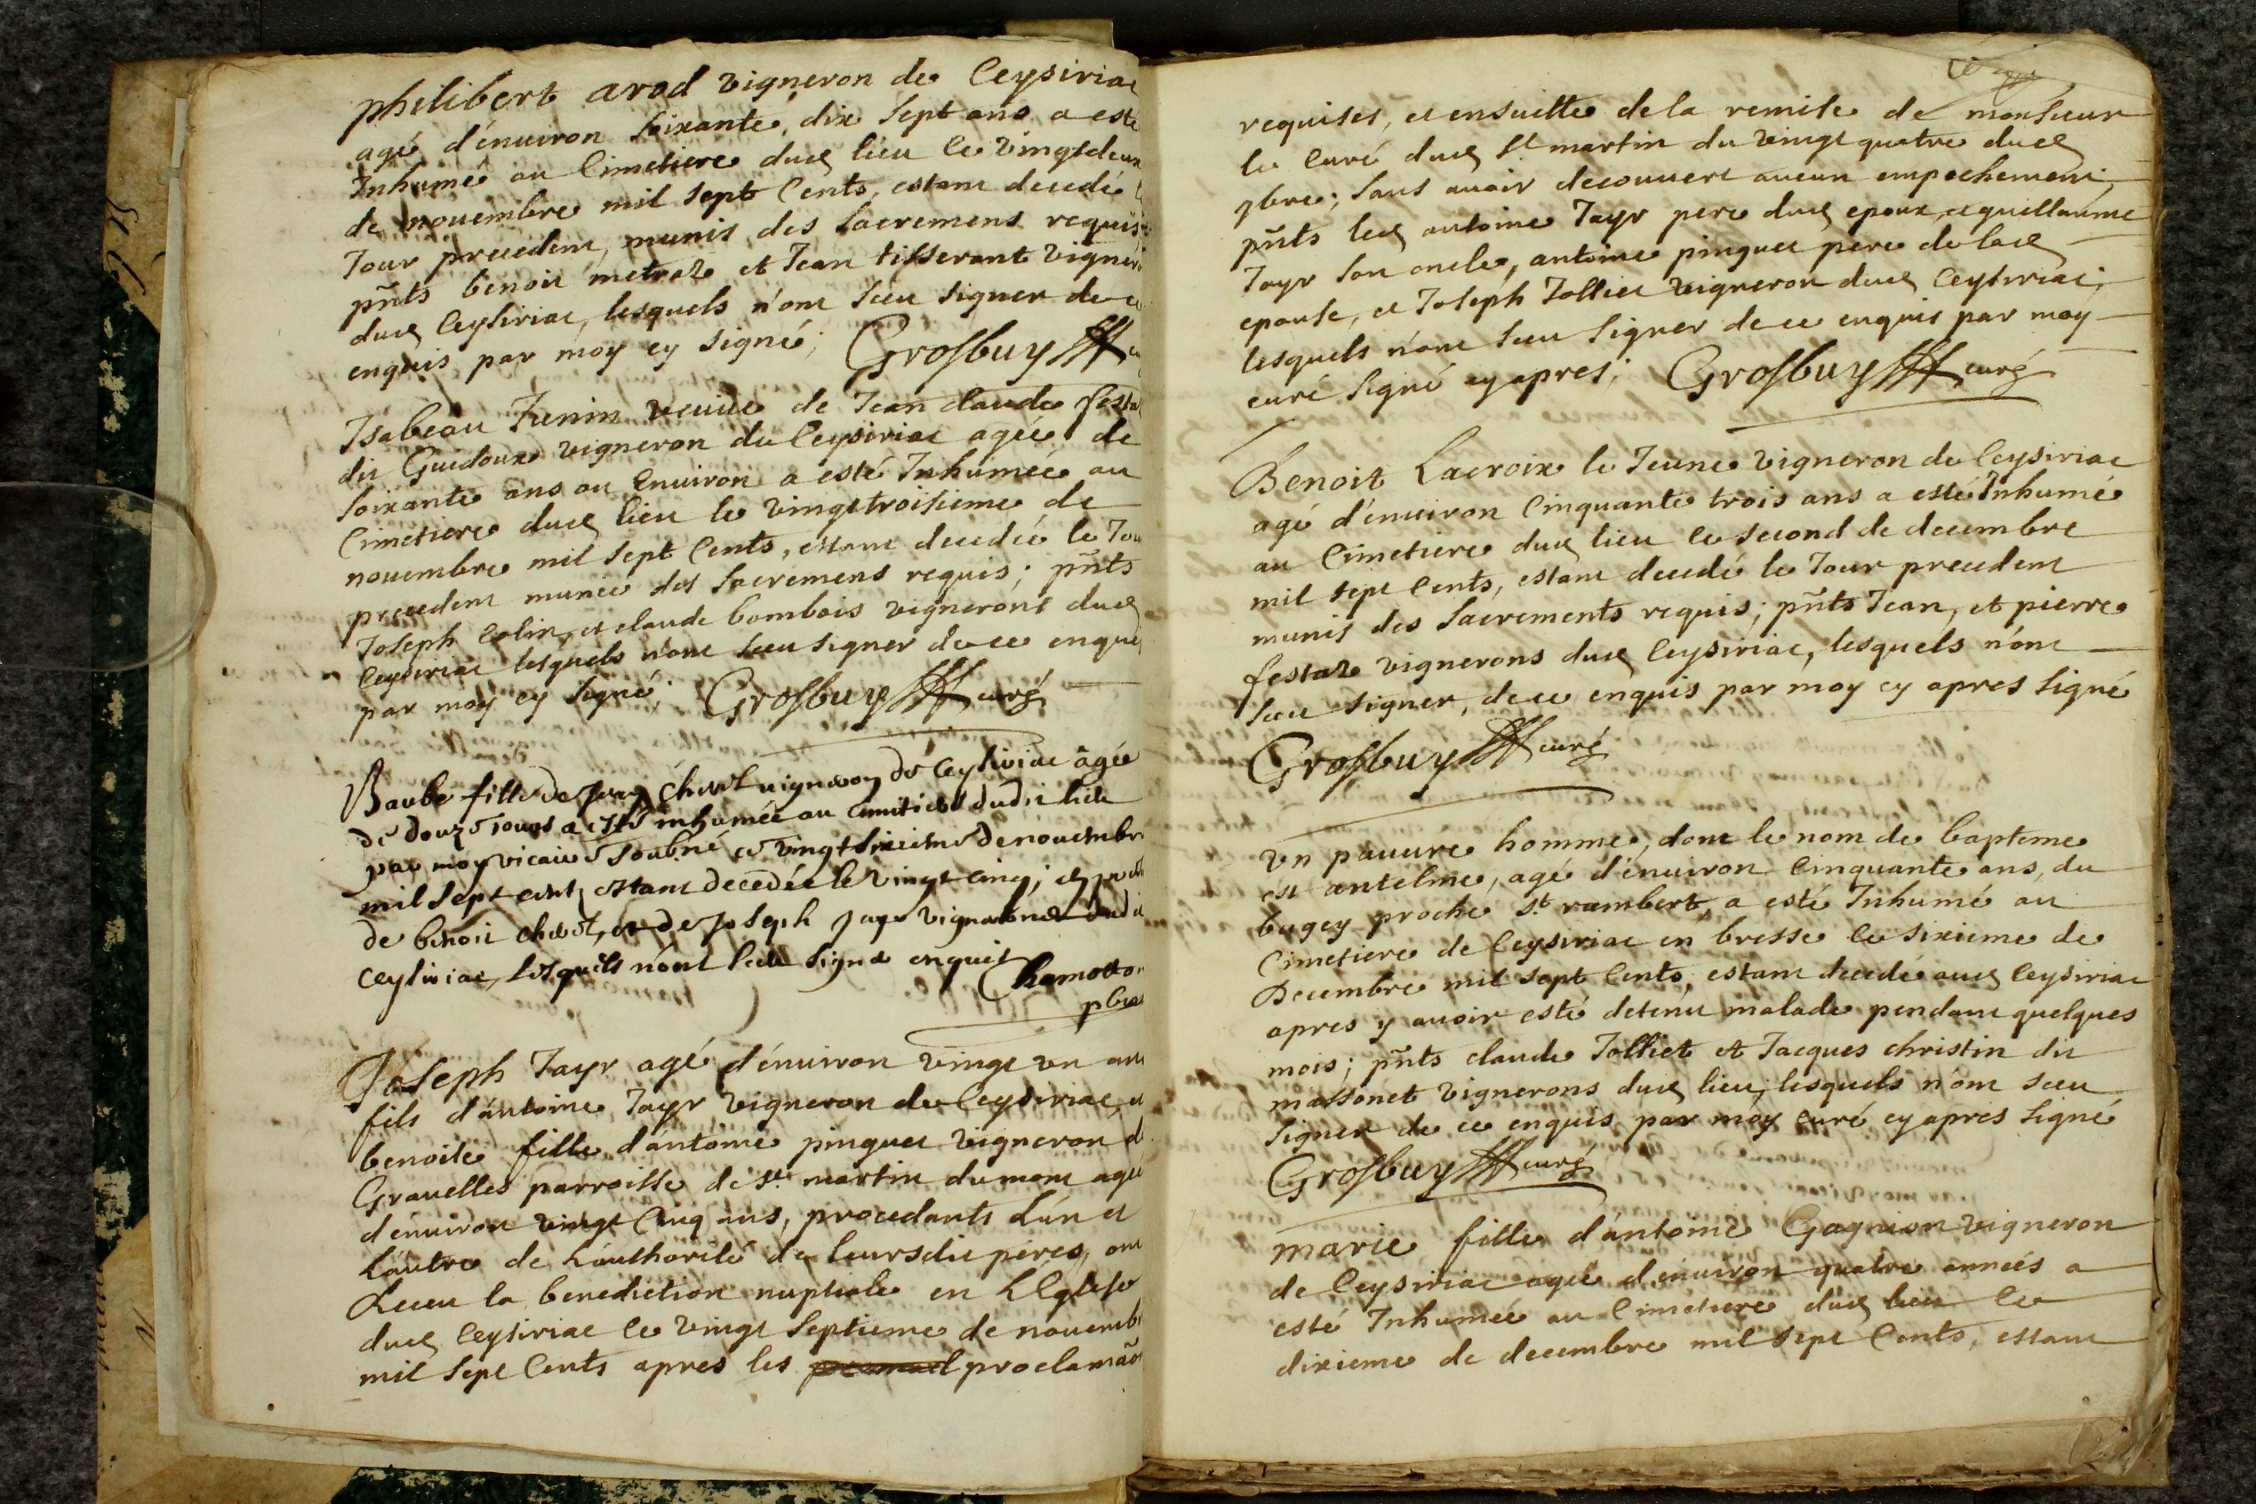 philibert arod vigneron de Ceysiriac
agé d'énuiron soixante, dix sept ans a esté
Inhumé au Cimetiere dud lieu ce vingtdeux
de nouembre mil sept Cents, estant decedé
Jour precedent, munis des sacremens requis
pñts benoit metraz et Jean tisserant vigner
dud Ceysiriac, lesquels n'ont sceu signer de ce
enquis par moy cy signé; Grosbuy
Isabeau Fenin veuiue de Jean claude festa
dit Guidoux vigneron de Ceysiriac agée de
soixante ans ou Enuiron a esté Inhumée au
Cimetiere dud lieu le vingttroisieme de
nouembre mil sept Cents, estant decedée le Jou
precedent munie des sacremens requis; pñts
Joseph Colin, et claude bombois vignerons dud
Ceysiriac lesquels n'ont sceu signer de ce enquis
par moy cy signé; Grosbuy curé
Barbe fille de Jean vigneron de Ceysiriac âgée
de douze iours a esté inhumée au cimitiere dudit lieu
par moy vicaire soubné ce vingtsixieme de nouembre
mil sept cent estant decedée le vingt cinq;
de benoit et de Joseph Jayr vignerons dudit
ceysiriac, lesquels n'ont sceu signé enquis
Chamotton
pbre
Joseph Jayr agé d'énuiron vingt vn ans
fils d'antoine Jayr vigneron de Ceysiriac, et
benoite fille d'antoine pinguet vigneron d
Grauelles parroisse de st martin dumont agée
d'enuiron vingt Cinq ans, procedants L'ún et
L'autre de L'authorité de leursdit péres, ont
Receu la benediction nuptiale en LEglise
dud Ceysiriac le vingt septieme de nouemb
mil sept Cents apres les proclamãõn
requises, et ensuitte de la remise de monsieur
le Curé dud st martin du vingt quatre dud
9bre; sans auoir decouuert aucun empechement
pñts led antoine Jayr pere dud epoux, et guillaume
Jayr son oncle, antoine pinguet pere de lad
epouse, et Joséph Jolliet vigneron dud Ceysiriac;
lesquels n'ont sceu signer de ce enquis par moy
curé signé cy apres; Grosbuy curé
Benoit Lacroix le Jeune vigneron de Ceysiriac
agé d'énuiron Cinquante trois ans a esté Inhumé
au Cimetiere dud lieu ce second de decembre
mil sept Cents, estant decedé le Jour precedent
munis des sacrements requis; pñts Jean, et pierre
festaz vignerons dud Ceysiriac, lesquels n'ont
sceu signer, de ce enquis par moy cy apres signé
Grosbuy curé
vn pauure homme, dont le nom de bapteme
est antelme, agé d'énuiron Cinquante ans, du
bugey proche st rambert, a esté Inhumé au
Cimetiere de Ceysiriac en bresse ce sixieme de
Decembre mil sept Cents, estant decedé aud Ceysiriac
apres y auoir esté detenu malade pendant quelques
mois; pñts claude Jolliet et Jacques christin dit
massonet vignerons dud lieu, lesquels n'ont sceu
signer de ce enquis par moy curé cy apres signé
Grosbuy curé
marie fille d'ántoine Gagnion vigneron
de Ceysiriac agée d'enuiron quatre années a
esté Inhumée au Cimetiere dud lieu ce
dixieme de decembre mil sept Cents, estant